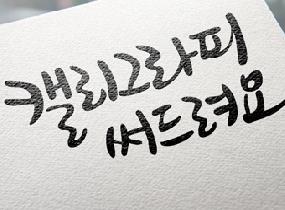 캘리그라피
써드려요